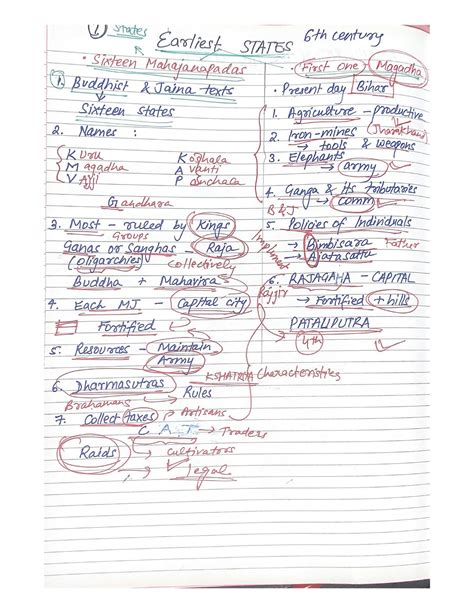 ① States
Earliest STATES 6th century
• Sixteen Mahajanapadas
1. Buddhist & Jaina texts
Sixteen states
2. Names :
Kuru Koshala
Magadha Avanti
Vajji Panchala
Gandhara
3. Most - ruled by Kings
Groups
Ganas or Sanghas Raja
(oligarchies) Collectively
Buddha + Mahavira
4. Each MJ - Capital city
Fortified
5. Resources - Maintain
Army
KSHATRIA characteristics
6. Dharmasutras
Brahamans Rules
7. Collect taxes → Artisans
C A T → Traders
Raids → cultivators
→ Legal
First One Magadha
• Present day Bihar
1. Agriculture - productive
2. Iron-mines Jharakhand
→ tools & weapons
3. Elephants
→ army
4. Ganga & its tributaries
B & J → comm
5. Policies of Individuals
Implement → Bimbisara Father
→ Ajatasattu
6. RAJAGAHA - CAPITAL
Rajgir → Fortified + hills
PATALIPUTRA
4th